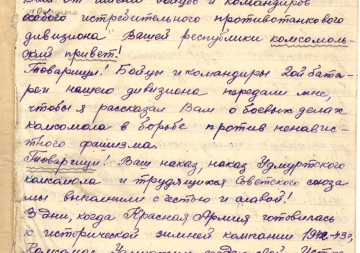 Вам от имени бойцов и командиров
особого истребительного противотанкового
дивизиона Вашей республики комсомоль-
ский привет!
Товарищи! Бойцы и командиры 2ой бата-
реи нашего дивизиона передали мне,
чтобы я рассказал Вам о боевых делах
комсомола в борьбе против ненавис-
тного фашизма.
Товарищи! Ваш наказ, наказ Удмуртского
комсомола и трудящихся Советского союза
мы выполнили с честью и славой!
В дни, когда Красная Армия готовилась
к исторической зимней кампании 1942-43г,
Комсомол Удмуртии создал свой Истре